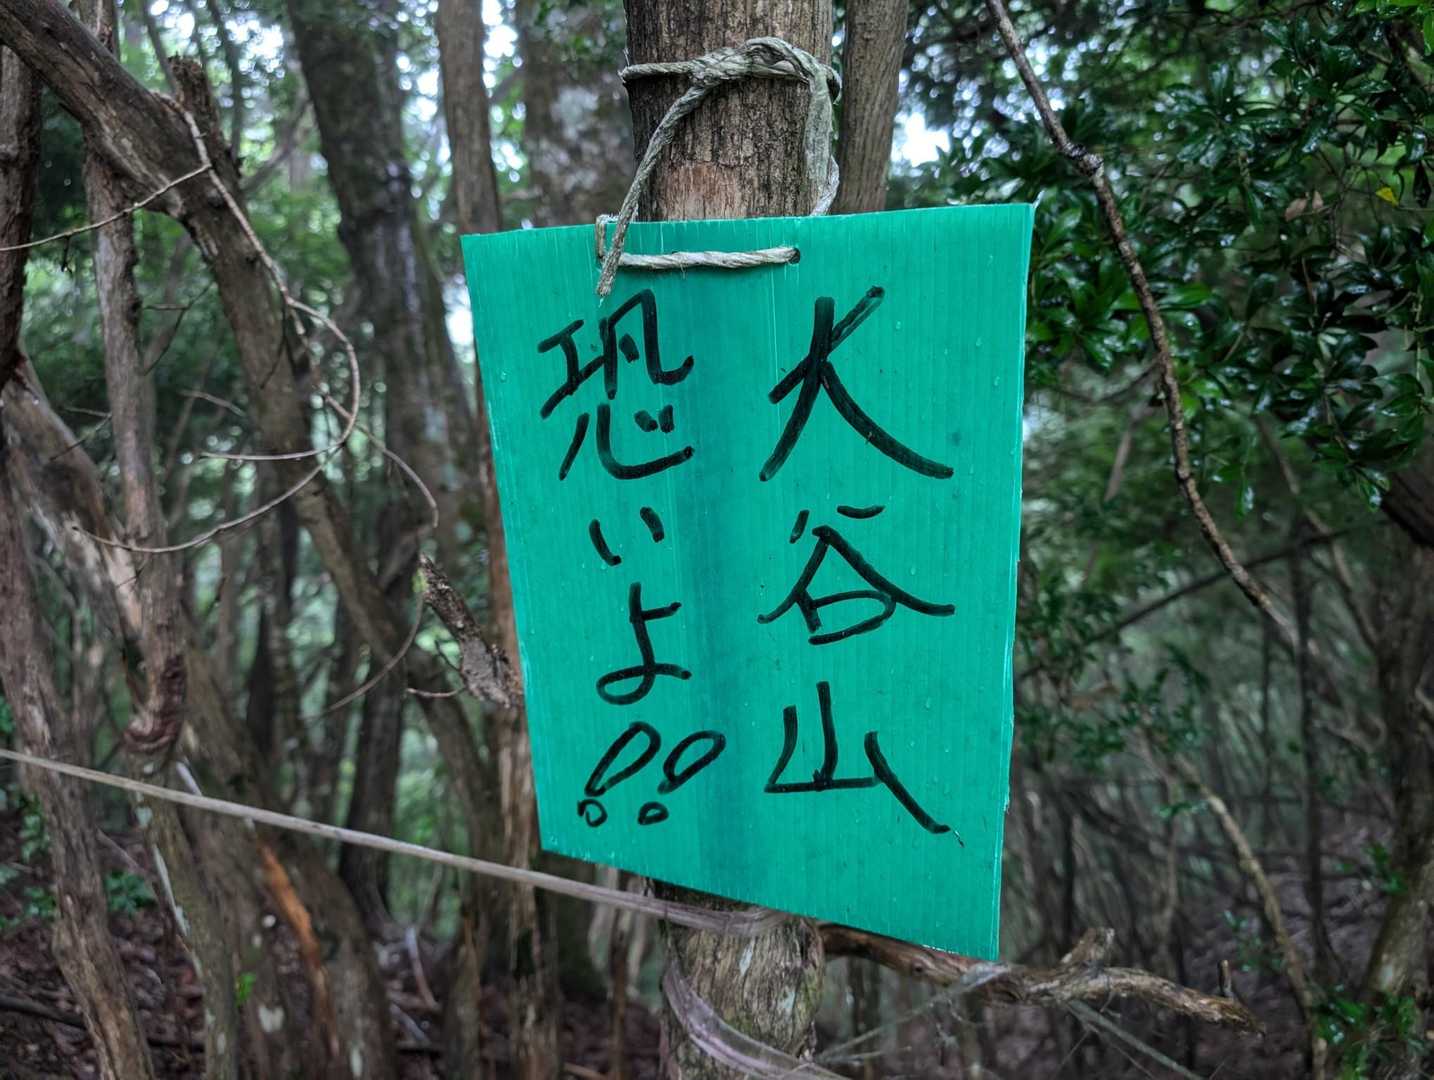 大谷山
恐いよ!!